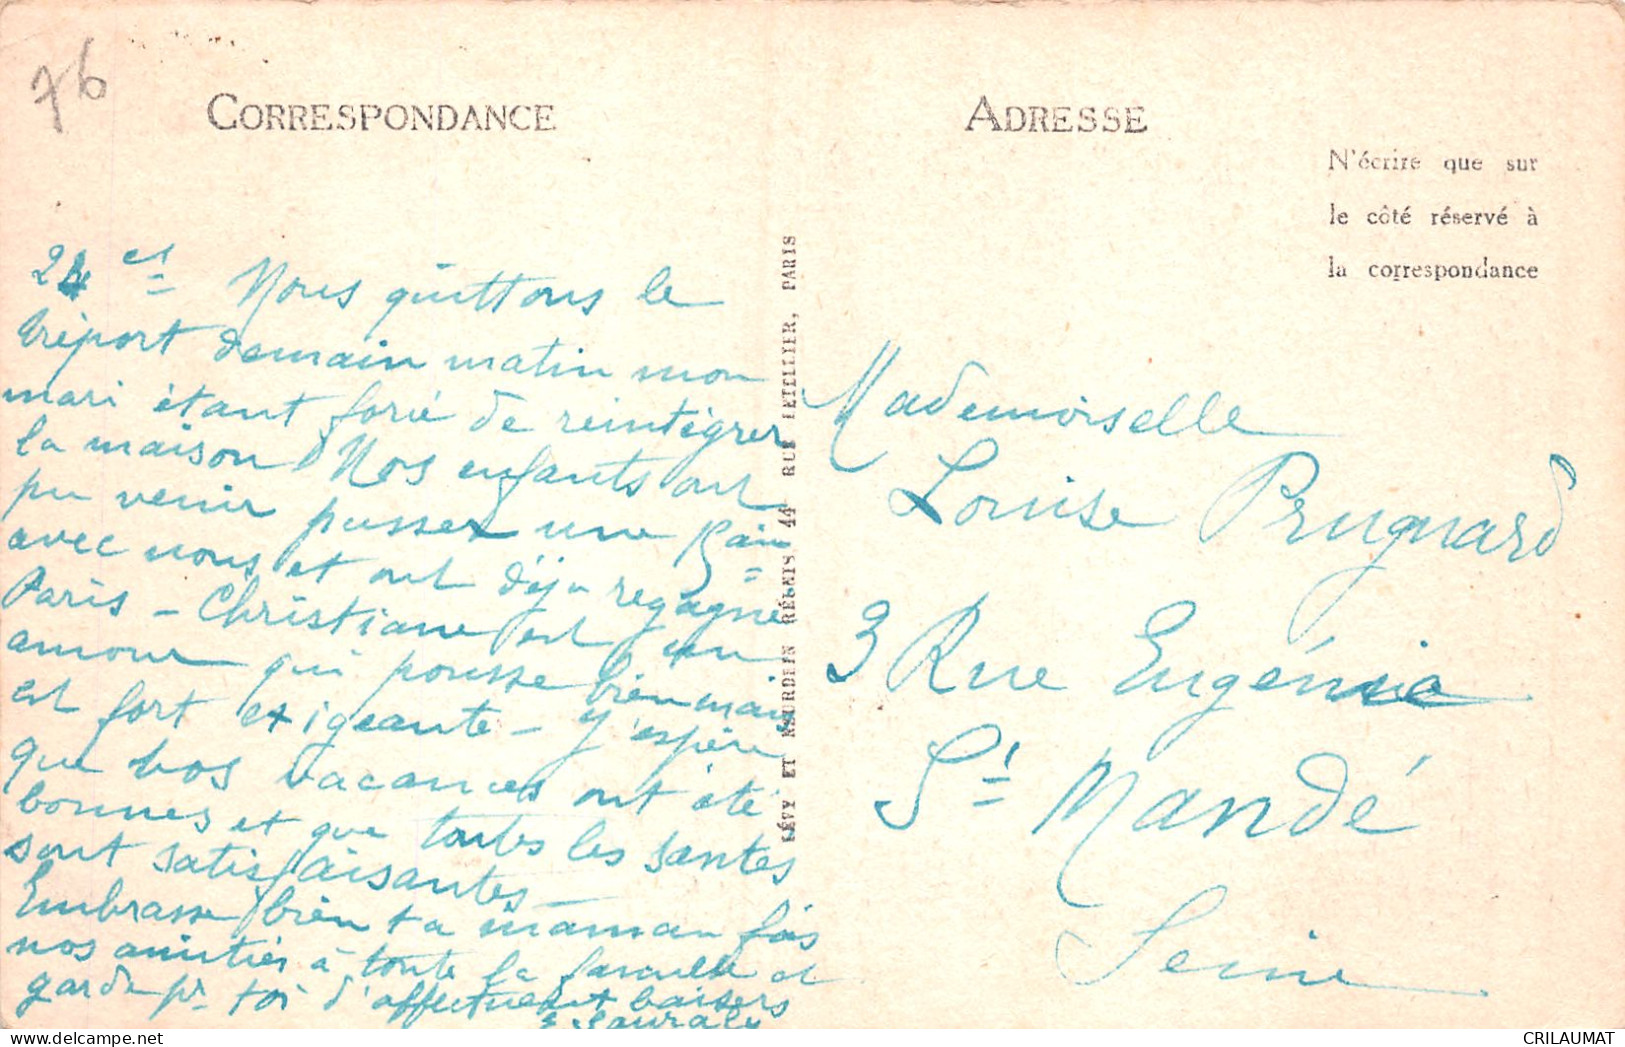 76
CORRESPONDANCE
24 ct Nous quittons le
tréport demain matin mon
mari étant forcé de réintégrer
la maison Nos enfants ont
pu venir passer une 15aine
avec nous et ont déja regagné
Paris - Christiane est un
amour qui pousse bien mais
est fort exigeante - J'espère
que vos vacances ont été
bonnes et que toutes les santés
sont satisfaisantes -
Embrasse bien ta maman fais
nos amitiés à toute la famille et
garde pr toi d'affectueux baisers
LÉVY ET NEURDEIN RÉUNIS, 44 RUE LETELLIER, PARIS
ADRESSE
N'écrire que sur
le côté réservé à
la correspondance
Mademoiselle
Louise Prugnard
3 Rue Eugénie
St Mandé
Seine
CRILAUMAT